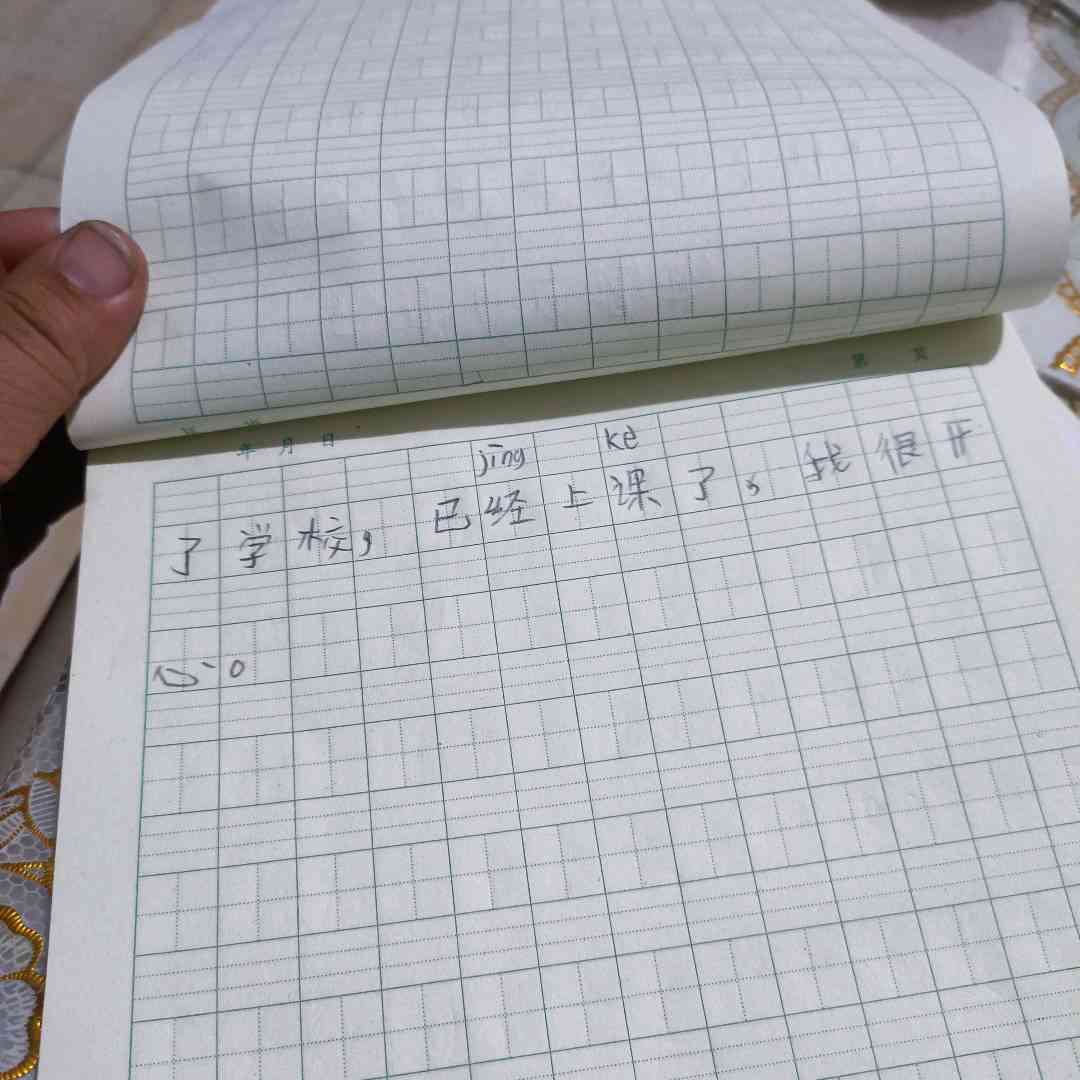 年 月 日
第 页
jīng kè
了学校，已经上课了，我很开
心。